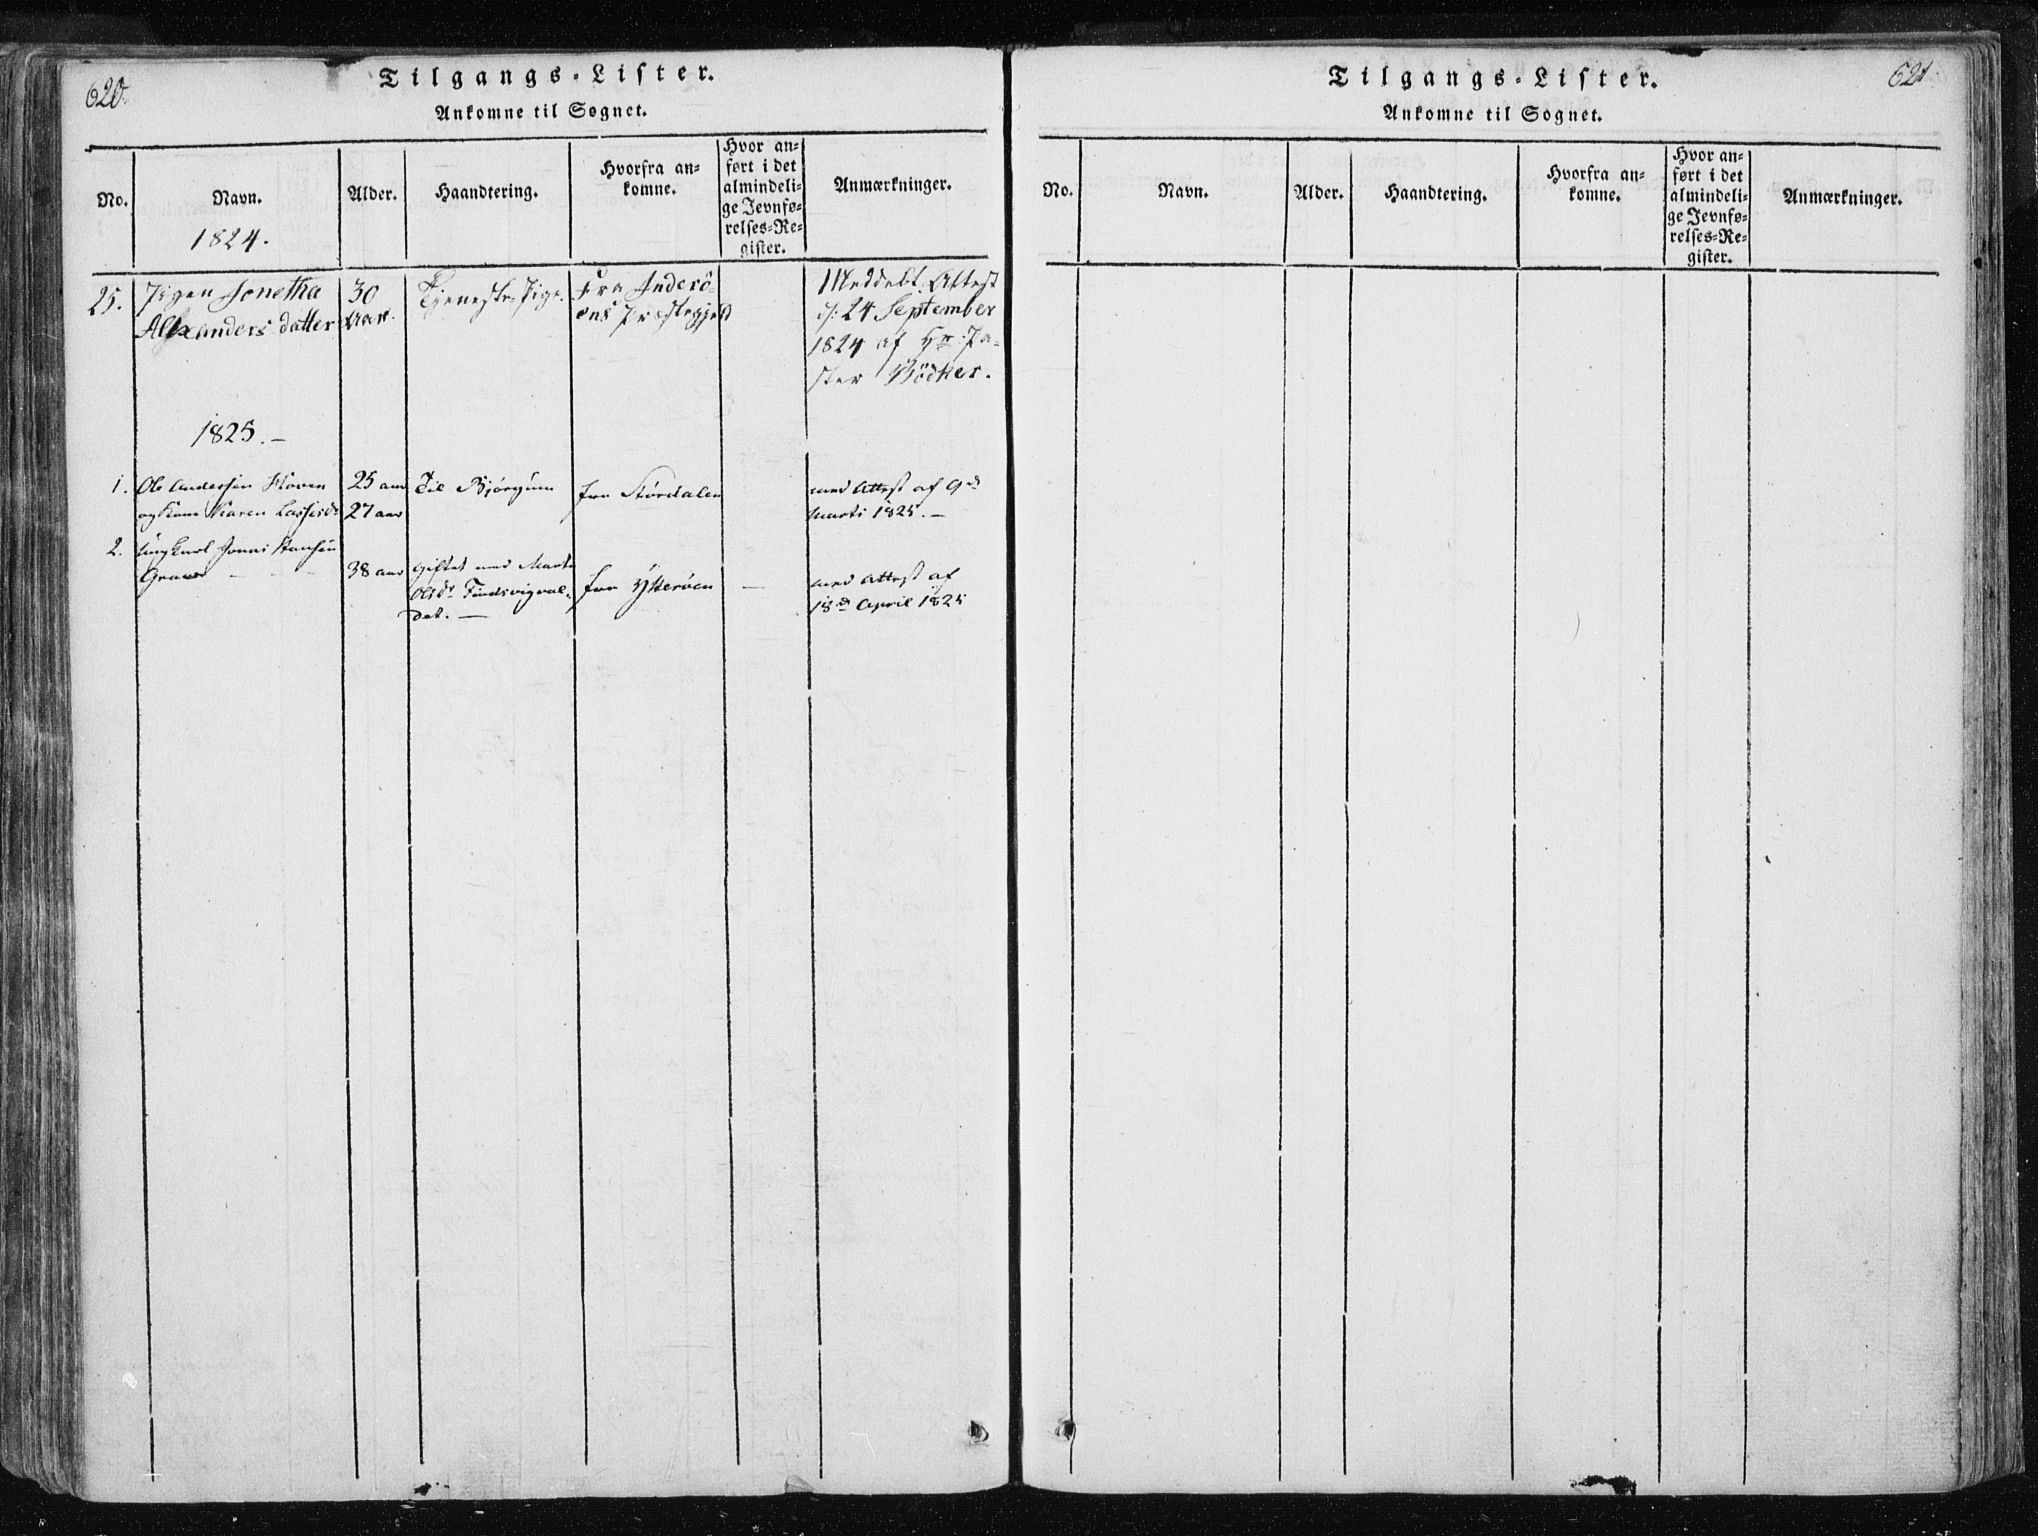 620.
Tilgangs-Lister.
Ankomne til Sognet.
No.
Navn.
Alder.
Haandtering.
Hvorfra an-
komne.
Hvor an-
ført i det
almindeli-
ge Jevnfø-
relses-Re-
gister.
Anmærkninger.
1824.
25.
Pigen Jonetha
Alexanders datter
30
Aar.
Tjeneste-Pige.
Fra Inderö-
ens Præstegjeld
Meddelt Attest
d: 24 September
1824 af Hr: Pa-
stor Bödker.
1825. –
1.
Ole Anderssen
og Kone Karen Lassesdr
25 aar
27 aar
Til Bjørgum
fra Størdalen
med Attest af 9de
Marti 1825. –
2.
Ungkarl Jonas Hansen
38 aar
Giftet med Marta
Olsdr Tindsvigval-
det. –
fra Ytterøen
–
med Attest af
18de April 1825
621.
Tilgangs-Lister.
Ankomne til Sognet.
No.
Navn.
Alder.
Haandtering.
Hvorfra an-
komne.
Hvor an-
ført i det
almindeli-
ge Jevnfø-
relses-Re-
gister.
Anmærkninger.